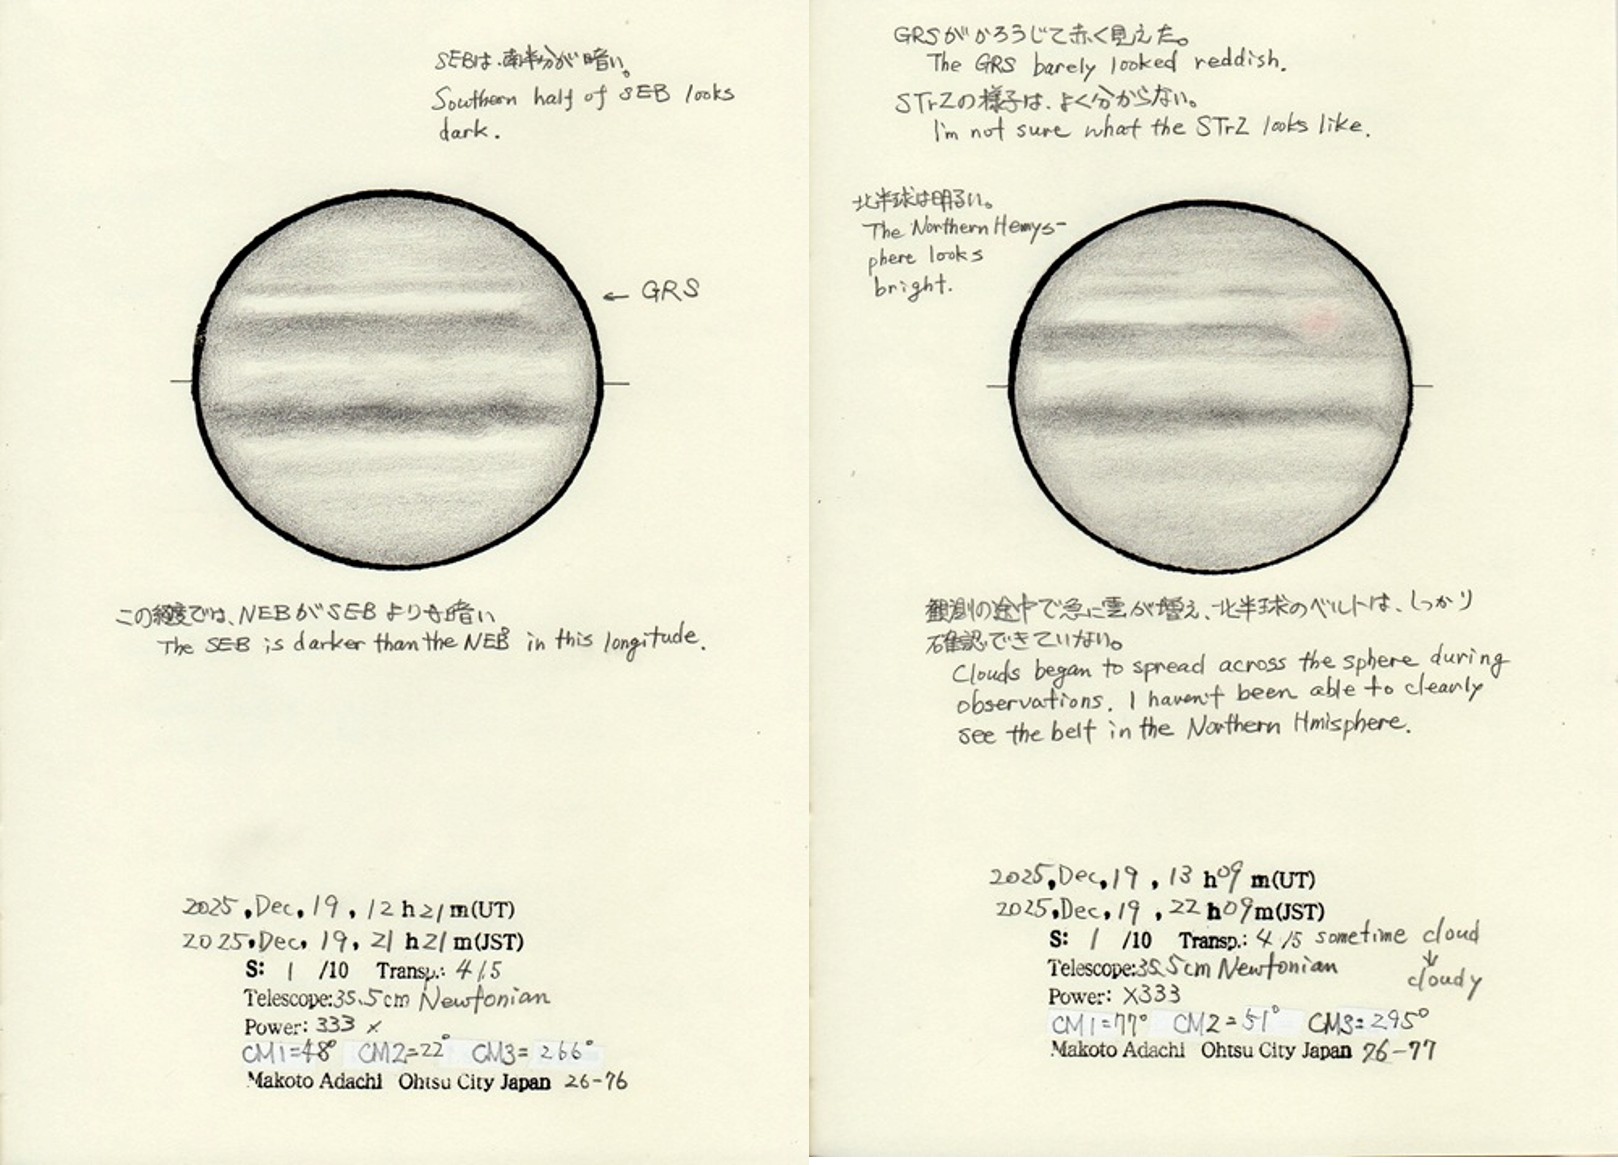 SEBは、南半分が暗い。
Southern half of SEB looks
dark.
← GRS
この経度では、NEBがSEBよりも暗い
The SEB is darker than the NEB in this longitude.
2025, Dec, 19, 12 h 21 m(UT)
2025, Dec, 19, 21 h 21 m(JST)
S: 1 /10 Transp.: 4/5
Telescope:35.5cm Newtonian
Power: 333 x
CM1=48° CM2=22° CM3=266°
Makoto Adachi Ohtsu City Japan 26-76
GRSがかろうじて赤く見えた。
The GRS barely looked reddish.
STrZの様子は、よく分からない。
I'm not sure what the STrZ looks like.
北半球は明るい。
The Northern Hemys-
phere looks
bright.
観測の途中で急に雲が増え、北半球のベルトは、しっかり
確認できていない。
Clouds began to spread across the sphere during
observations. I haven't been able to clearly
see the belt in the Northern Hmisphere.
2025, Dec, 19, 13 h 09 m(UT)
2025, Dec, 19, 22 h 09 m(JST)
S: 1 /10 Transp.: 4/5 sometime cloud
↓
cloudy
Telescope:35.5cm Newtonian
Power: X333
CM1=77° CM2=51° CM3=295°
Makoto Adachi Ohtsu City Japan 26-77